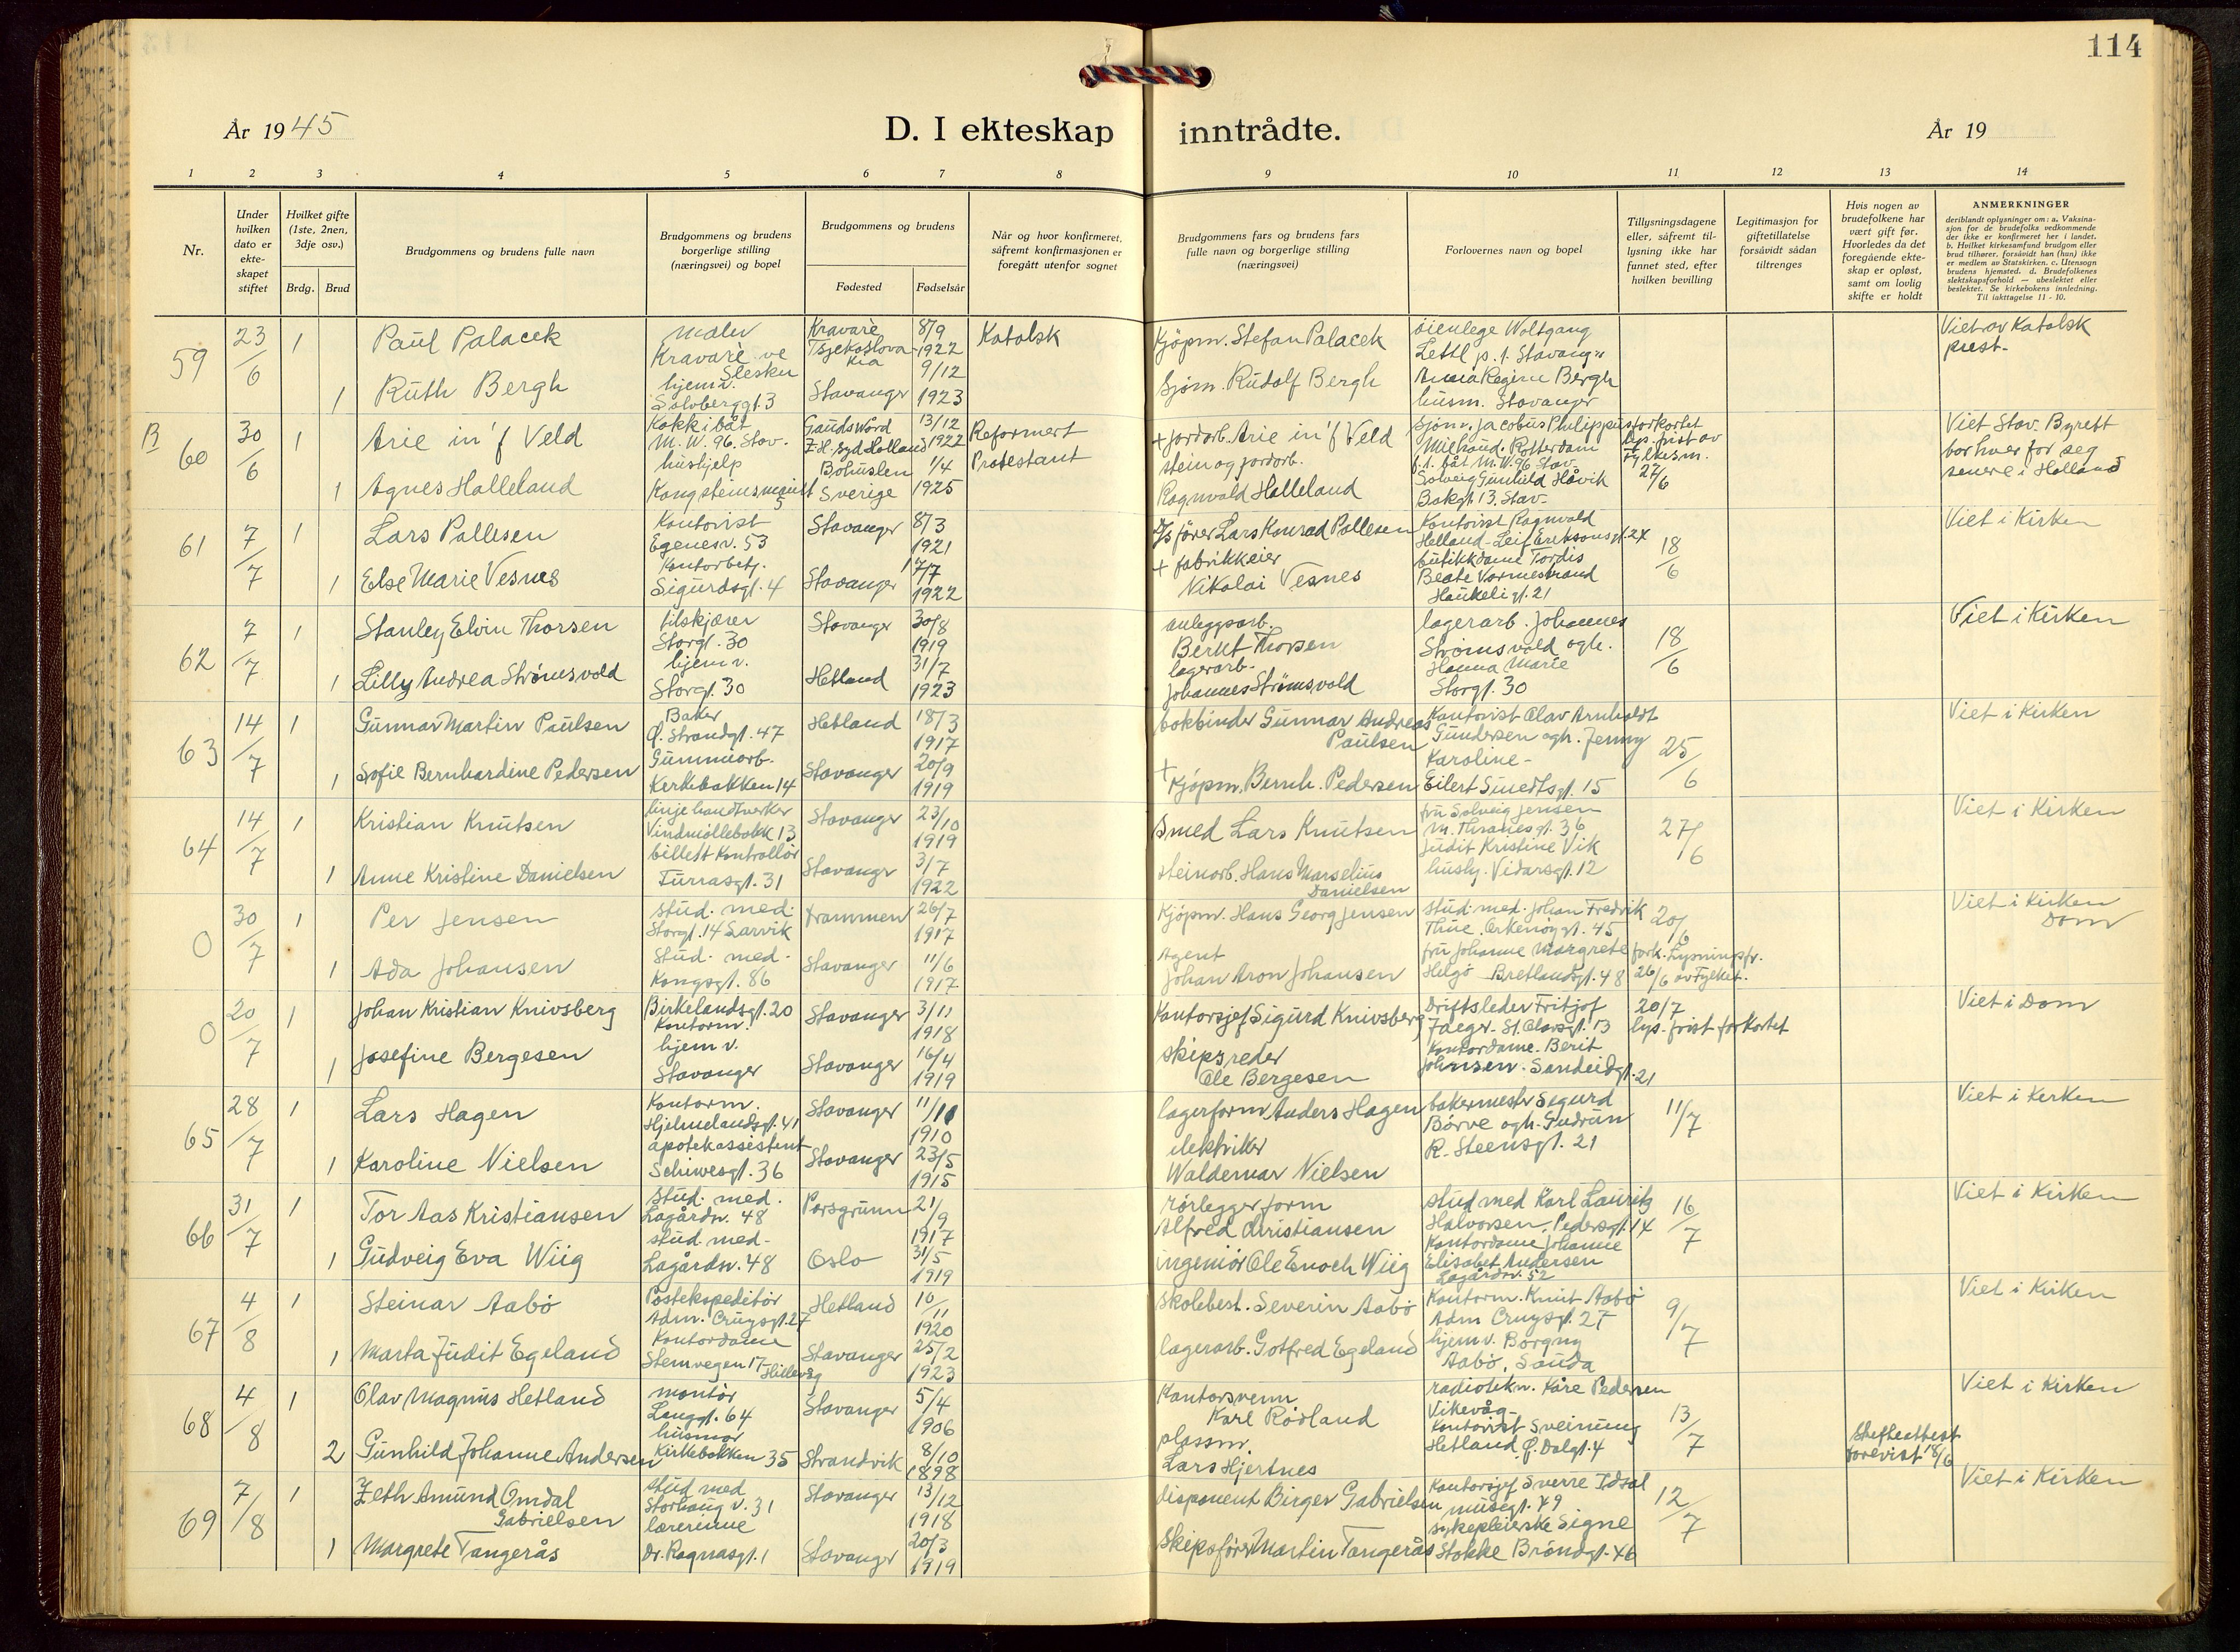 114
År 1945
D. I ekteskap inntrådte.
År 19
1 2 3 4 5 6 7 8 9 10 11 12 13 14
Nr.
Under hvilken dato er ekte-skapet stiftet
Hvilket gifte (1ste, 2nen, 3dje osv.)
Brdg. Brud
Brudgommens og brudens fulle navn
Brudgommens og brudens borgerlige stilling (næringsvei) og bopel
Brudgommens og brudens
Fødested
Fødselsår
Når og hvor konfirmeret, såfremt konfirmasjonen er foregått utenfor sognet
Brudgommens fars og brudens fars fulle navn og borgerlige stilling (næringsvei)
Forlovernes navn og bopel
Tillysningsdagene eller, såfremt til-lysning ikke har funnet sted, efter hvilken bevilling
Legitimasjon for giftetillatelse forsåvidt sådan tiltrenges
Hvis nogen av brudefolkene har vært gift før. Hvorledes da det foregående ekte-skap er opløst, samt om lovlig skifte er holdt
ANMERKNINGER
deriblandt oplysninger om: a. Vaksina-sjon for de brudefolks vedkommende der ikke er konfirmeret her i landet. b. Hvilket kirkesamfund brudgom eller brud tilhører, forsåvidt han (hun) ikke er medlem av Statskirken. c. Utensogn brudens hjemsted. d. Brudefolkenes slektskapsforhold — ubeslektet eller beslektet. Se kirkebokens innledning. Til iakttagelse 11 - 10.
59 23/6 1 Paul Palacek maler Kravaře ve Slesku Kravaře Tsjekoslovakia 8/9 1922 Katolsk Kjøpm. Stefan Palacek øienlege Wolfgang Lettl p.t. Stavanger Viet av Katolsk prest
1 Ruth Bergh hjemv. Solvberggt. 3 Stavanger 9/12 1923 Sjøm. Rudolf Bergh Anna Regine Bergh husm. Stavanger
B 60 30/6 1 Arie in't Veld Kokk i båt M.W. 96. Stav. Z.H. Syd Holland 13/12 1922 Reformert + jordarb. Arie in't Veld Sjøm. Jacobus Philippus Rotterdam p.t. båt M.W. 96 Stav. forkortet lys. frist av Fylkesm. 27/6 Viet Stav. Byrett bor hver for seg senere i Holland
1 Agnes Halleland hushjelp Bohuslen Sverige 1/4 1925 Protestant stein og jordarb. Ragnvald Halleland Solveig Gunhild Håvik Bakgt. 13. Stav.
61 7/7 1 Lars Pallesen Kontorist Egenesv. 53 Stavanger 8/3 1921 fører Lars Konrad Pallesen Kontorist Ragnvald Helland - Leif Eriksonsgt. 24 18/6 Viet i Kirken
1 Else Marie Vesnes Kontorbetj. Sigurdsgt. 4 Stavanger 1922 + fabrikkeier Nikolai Vesnes butikkdame Tordis Beate Vormestrand Haukeligt. 21
62 7/7 1 Stanley Elvin Thorsen tilskjærer Storgt. 30 Stavanger 30/8 1919 anleggsarb. Bernt Thorsen lagerarb. Johannes Strømsvold ogh. Hanna Marie Storgt. 30 18/6 Viet i Kirken
1 Lilly Andrea Strømsvold hjemv. Storgt. 30 Hetland 31/7 1923 lagerarb. Johannes Strømsvold
63 14/7 1 Gunnar Martin Paulsen Baker Ø. Strandgt. 47 Hetland 18/3 1917 bokbinder Gunnar Andreas Paulsen Kontorist Olav Arnholdt Gundersen ogh. Jenny Karoline - Eilert Smedtsgt. 15 25/6 Viet i Kirken
1 Sofie Bernhardine Pedersen Gummiarb. Kirkebakken 14 Stavanger 20/9 1919 + Kjøpm. Bernh. Pedersen
64 14/7 1 Kristian Knutsen linjehandtverker Vindmøllebakk 13 Stavanger 23/10 1919 Smed Lars Knutsen fru Solveig Jensen M. Thranesgt. 36 27/6 Viet i Kirken
1 Anne Kristine Danielsen billettkontrollør Turrasgt. 31 Stavanger 3/7 1922 steinarb. Hans Marselius Danielsen Judit Kristine Vik hushj. Vidarsgt. 12
0 30/7 1 Per Jensen stud. med. Storgt. 14 Larvik Drammen 26/7 1917 Kjøpm. Hans Georg Jensen stud. med. Johan Fredrik Thue. Orknøygt. 45 20/6 Viet i Kirken Dom
1 Ada Johansen Stud. med. Kongsgt. 86 Stavanger 11/6 1917 Agent Johan Aron Johansen fru Johanne Margrete Helgø Bretlandsgt. 48 fork. lysningsfr. 26/6 av Fylket.
0 20/7 1 Johan Kristian Knivsberg Birkelandsgt. 20 Kontorm. Stavanger 3/11 1918 Kontorsjef Sigurd Knivsberg Driftsleder Fritjof Jaeger - St. Olavsgt. 13 20/7 lys. frist forkortet Viet i Dom
1 Josefine Bergesen hjemv. Stavanger Stavanger 16/4 1919 skipsreder Ole Bergesen Kontordame Berit Johnsen. Sandeidgt. 21
65 28/7 1 Lars Hagen Kontorm. Hjelmelandsgt. 41 Stavanger 1910 lagerform. Anders Hagen bakermester Sigurd Børve ogh. Gudrun R. Steensgt. 21 11/7 Viet i Kirken
1 Karoline Nielsen apotekassistent Schiwesgt. 36 Stavanger 23/5 1915 elektriker Waldemar Nielsen
66 31/7 1 Tor Aas Kristiansen Stud. med. Lagårdsv. 48 Porsgrunn 21/9 1917 rørleggerform Alfred Christiansen stud med Karl Lauritz Halvorsen, Pedersgt. 14 16/7 Viet i Kirken
1 Gudveig Eva Wiig stud. med. Lagårdsv. 48 Oslo 31/5 1919 ingeniør Ole Enoch Wiig Kontordame Johanne Elisabet Andersen Lagårdsv. 52
67 4/8 1 Steinar Aabø Postekspeditør Adm. Cruysgt. 27 Hetland 10/11 1920 skolebest. Severin Aabø Kontorm. Knut Aabø Adm Cruysgt. 27 9/7 Viet i Kirken
1 Marta Judit Egeland Kontordame Stemvegen 17 Hillevåg Stavanger 25/2 1923 lagerarb. Gotfred Egeland hjemv. Borgny Aabø, Sauda
68 4/8 1 Olav Magnus Hetland montør Langgt. 64 Stavanger 5/4 1906 Kontorsvenn Karl Rødland radiotekn. Kåre Pedersen Vikevåg 13/7 Viet i Kirken
2 Gunhild Johanne Andersen husmor Kirkebakken 35 Strandvik 8/10 1898 plassm. Lars Hjertnes Kontorist Sveinung Hetland Ø. Dalgt. 4 Skifteattest forevist 18/6
69 7/8 1 Zeth Amund Omdal Gabrielsen stud med Storhaug v. 31 Stavanger 13/12 1918 disponent Birger Gabrielsen Kontorsjef Sverre Idsal musegt. 49 12/7 Viet i Kirken
1 Margrete Tangerås lærerinne Dr. Ragnasgt. 1 Stavanger 20/3 1919 Skipsfører Martin Tangerås sykepleierske Signe Stokke Brøndgt. 46